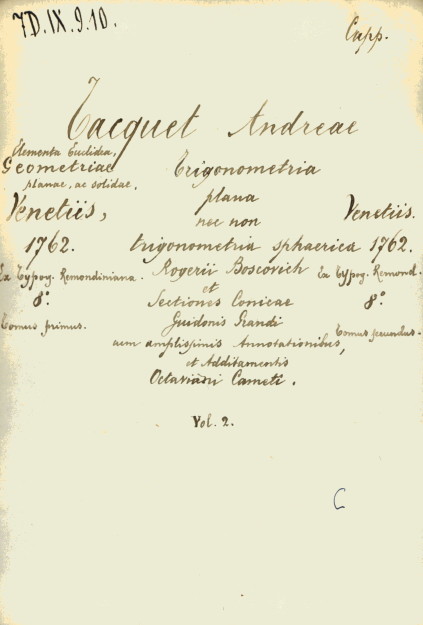 7D.IX.9.10.
Capp.
Tacquet Andreae
Elementa Euclidea,
Geometriae
planae, ac solidae.
Venetiis,
1762.
Ex Typog. Remondiniana.
8°.
Tomus primus.
Trigonometria
plana
nec non
trigonometria sphaerica
Rogerii Boscovich
et
Sectiones Conicae
Guidonis Grandi
cum amplissimis Annotationibus,
et Additamentis
Octaviani Cameti.
Venetiis.
1762.
Ex Typog. Remond.
8°.
Tomus secundus.
Vol. 2.
C